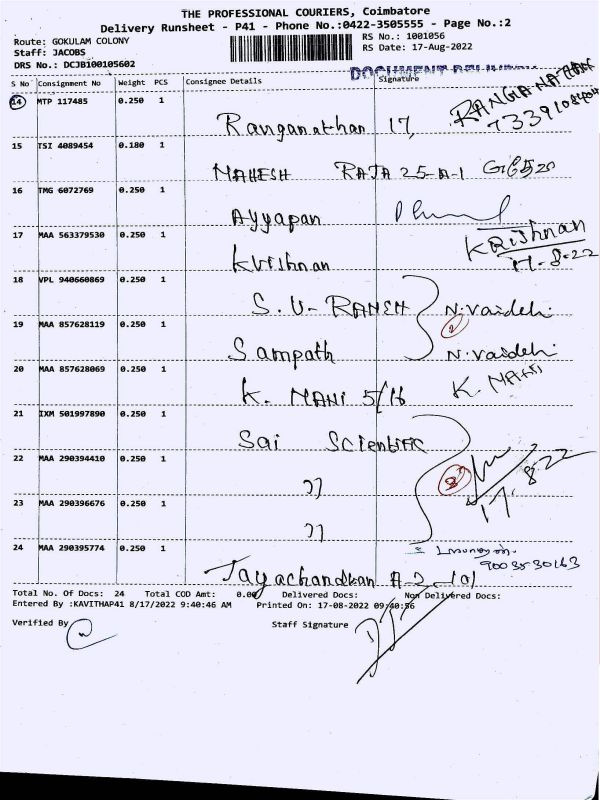 THE PROFESSIONAL COURIERS, Coimbatore
Delivery Runsheet - P41 - Phone No.:0422-3505555 - Page No.:2
Route: GOKULAM COLONY
RS No.: 1001056
Staff: JACOBS
RS Date: 17-Aug-2022
DRS No.: DCJB100105602
S No Consignment No Weight PCS Consignee Details Signature
14 MTP 117485 0.250 1
Ranganathan 17,
RANGANATHAN
15 TSI 4089454 0.180 1
MAHESH RAJA 25-A-1
16 TMG 6072769 0.250 1
Ayyapan
17 MAA 563379530 0.250 1
Krishnan
KRishnan
17-8-22
18 VPL 940660869 0.250 1
S.V-RAMESH N.Vaidehi
19 MAA 857628119 0.250 1
2
Sampath N.Vaidehi
20 MAA 857628069 0.250 1
K. MANI 5/16 K. MANI
21 IXM 501997890 0.250 1
Sai Scientific
22 MAA 290394410 0.250 1
3
17-8-22
23 MAA 290396676 0.250 1
24 MAA 290395774 0.250 1
Jayachandran A-2-101
9003530163
Total No. Of Docs: 24 Total COD Amt: 0.00 Delivered Docs: Non Delivered Docs:
Entered By :KAVITHAP41 8/17/2022 9:40:46 AM Printed On: 17-08-2022 09:40:56
Verified By Staff Signature